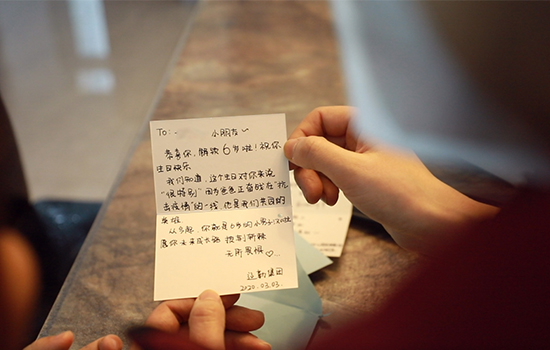 To: 小朋友
恭喜你，解锁6岁啦！祝你
生日快乐
我们知道，这个生日对你来说
“很特别” 因为爸爸正奋战在“抗
击疫情”的一线，他是我们共同的
英雄
从今起，你就是6岁的小男子汉啦
愿你未来成长路 披荆斩棘
无所畏惧♡...
远勤集团
2020.03.03.